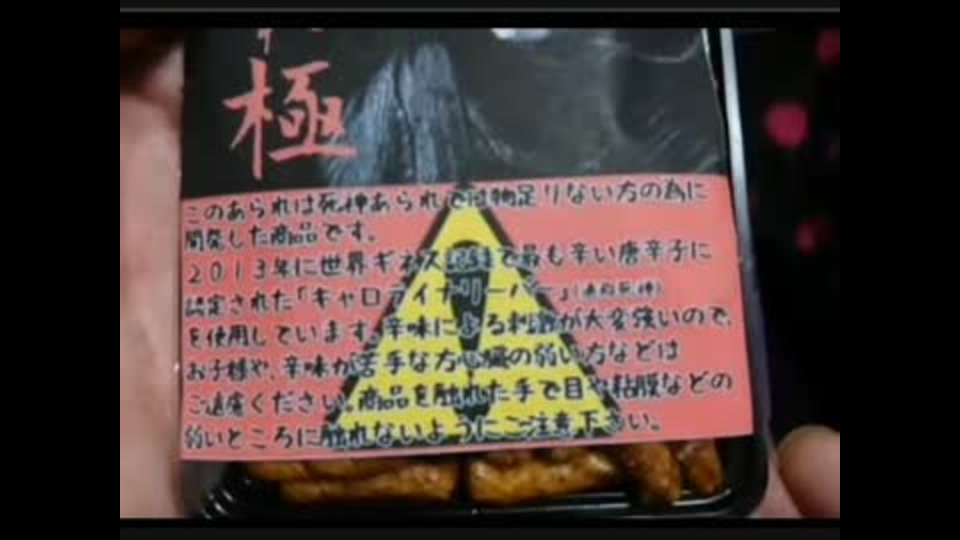 極
このあられは死神あられでは物足りない方の為に
開発した商品です。
2013年に世界ギネス記録で最も辛い唐辛子に
認定された「キャロライナリーパー」(通称死神)
を使用しています。辛味による刺激が大変強いので、
お子様や、辛味が苦手な方心臓の弱い方などは
ご遠慮ください。商品を触れた手で目や粘膜などの
弱いところに触れないようにご注意下さい。